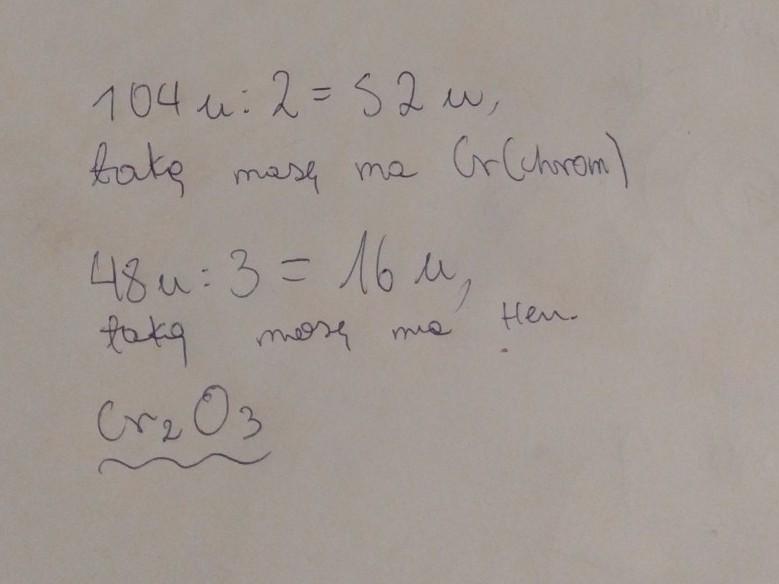 104 u : 2 = 52 u,
taką masę ma Cr (chrom)
48 u : 3 = 16 u,
taką masę ma
Cr₂O₃